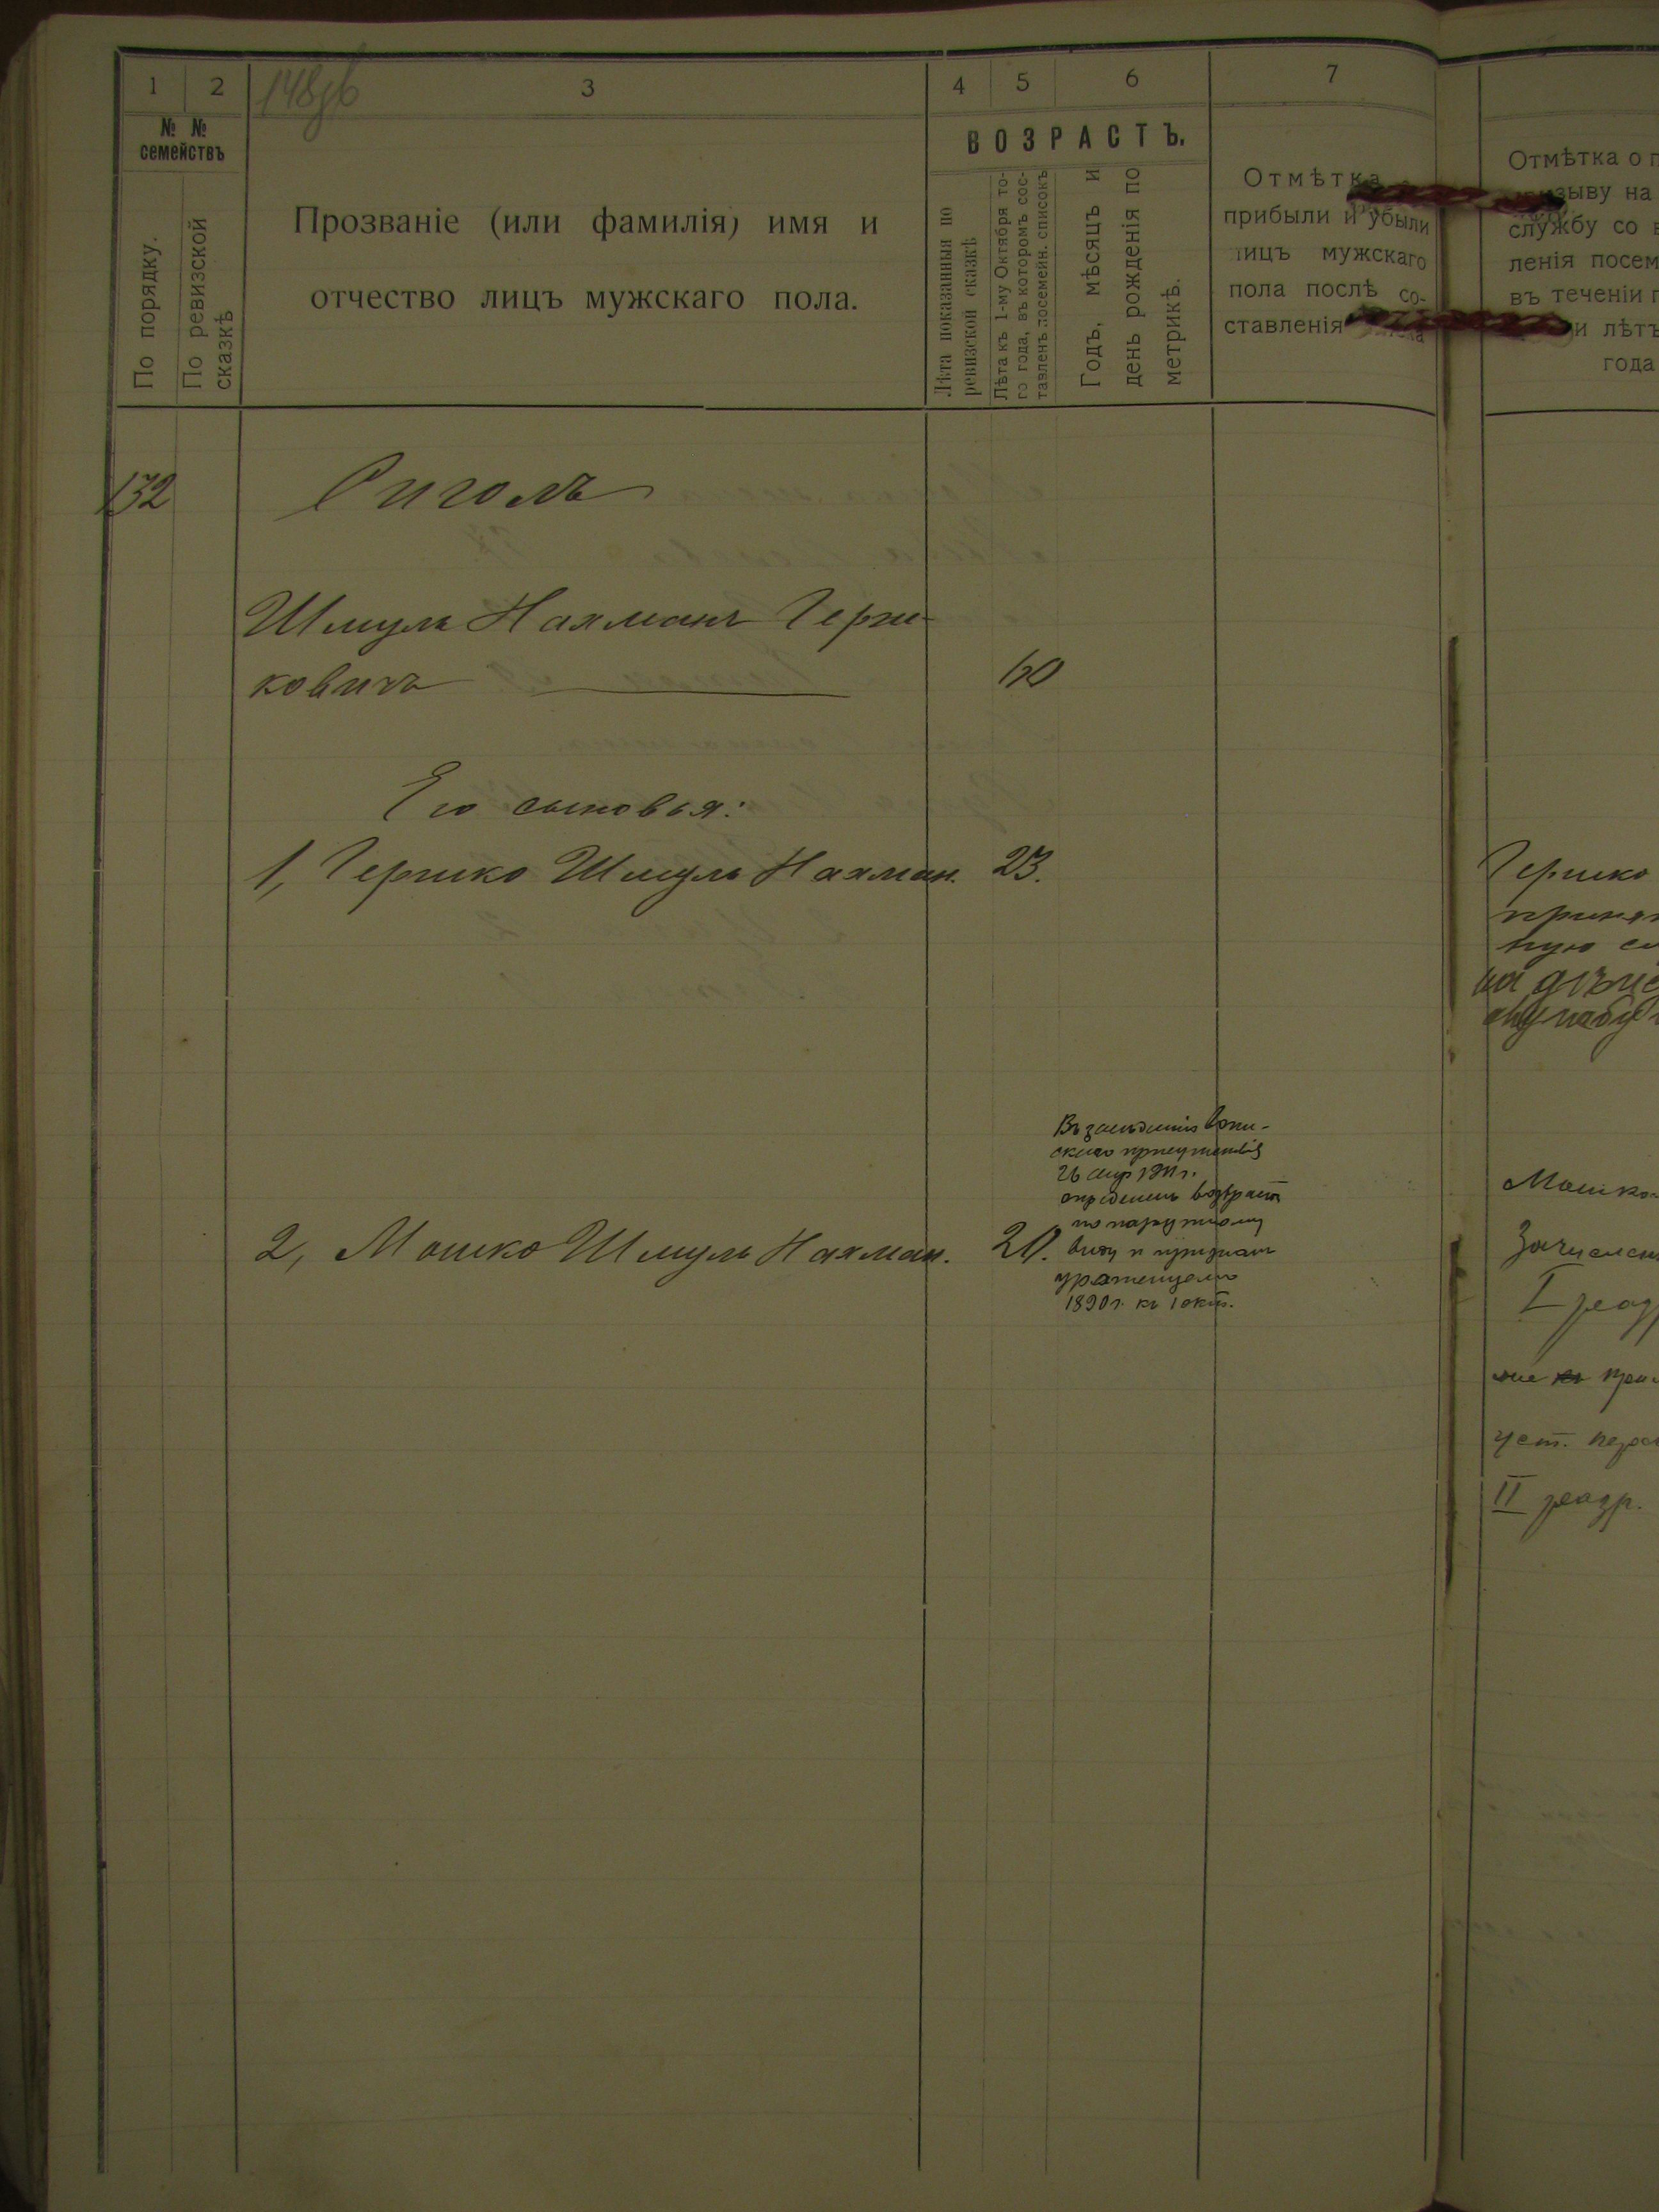 1 2 148об 3 4 5 6 7
№ № семействъ
По порядку.
По ревизской сказкѣ
Прозваніе (или фамилія) имя и
отчество лицъ мужскаго пола.
ВОЗРАСТЪ.
Лѣта показанныя по
ревизской сказкѣ
Лѣта къ 1-му Октября то-
го года, въ которомъ сос-
тавленъ посемейн. списокъ
Годъ, мѣсяцъ и
день рожденія по
метрикѣ.
Отмѣтка
прибыли и убыли
лицъ мужскаго
пола послѣ со-
ставленія
Отмѣтка о п
зыву на
службу со в
ленія посем
въ теченіи п
и лѣтъ
года
132 Сиголъ
Шмуль Нахманъ Герш-
ковичъ 60
Его сыновья:
1, Гершко Шмуль Нахман. 23.
Гершко
приня
ную сл
на дѣйс
службу
Въ засѣданіи
присутствія
26 1911 г.
опредѣленъ возрастъ
по наружному
виду и признанъ
1890 г. къ 1 окт.
2, Мошко Шмуль Нахман. 20.
Мошко
Зачислен
I разр
уст.
II разр.